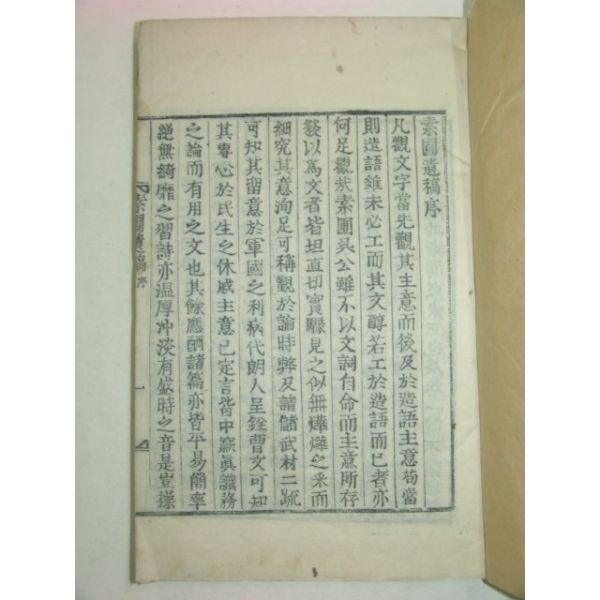 素圃遺稿序
凡觀文字當先觀其主意而後及於造語主意苟當
則造語雖未必工而其文醇若工於造語而已者亦
何足觀哉素圃吳公雖不以文詞自命而主意所存
發以爲文者皆坦直切實驟見之似無燁燁之采而
細究其意洵足可稱觀於論時弊及請儲武材二疏
可知其留意於軍國之利病代朗人呈銓曹文可知
其專心於民生之休戚主意已定言皆中窾眞識務
之論而有用之文也其餘應酬諸篇亦皆平易簡率
絶無綺靡之習詩亦溫厚冲淡有盛時之音是豈操
素圃遺稿 序 一